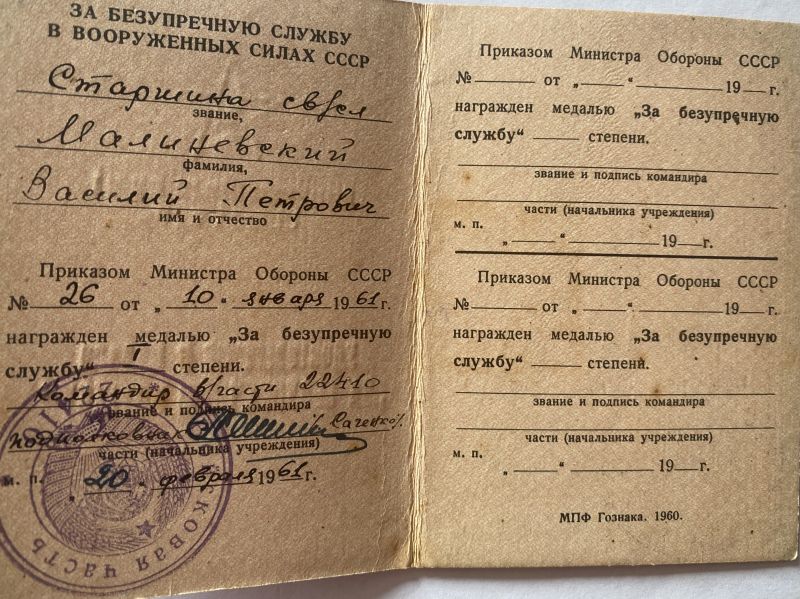 ЗА БЕЗУПРЕЧНУЮ СЛУЖБУ
В ВООРУЖЕННЫХ СИЛАХ СССР
Старшина
звание,
Малиневский
фамилия,
Василий Петрович
имя и отчество
Приказом Министра Обороны СССР
№ 26 от „ 10 “ января 1961 г.
награжден медалью „За безупречную
службу“ I степени.
Командир в/части 22410
звание и подпись командира
подполковник /Саченко/
части (начальника учреждения)
м. п.
„ 20 “ февраля 1961 г.
войсковая часть
Приказом Министра Обороны СССР
№ от „ “ 19 г.
награжден медалью „За безупречную
службу“ степени.
звание и подпись командира
части (начальника учреждения)
м. п.
„ “ 19 г.
Приказом Министра Обороны СССР
№ от „ “ 19 г.
награжден медалью „За безупречную
службу“ степени.
звание и подпись командира
части (начальника учреждения)
м. п.
„ “ 19 г.
МПФ Гознака. 1960.